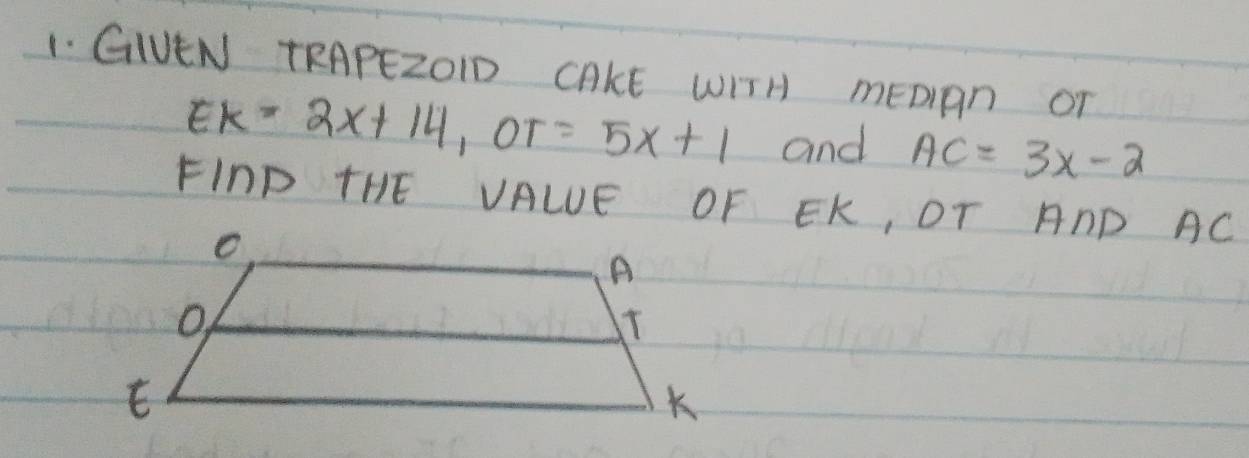 1. GIVEN TRAPEZOID CAKE WITH MEDIAN OT
EK = 2x + 14, OT = 5x + 1 and AC = 3x - 2
FIND THE VALUE OF EK, OT AND AC
C A
O T
E K